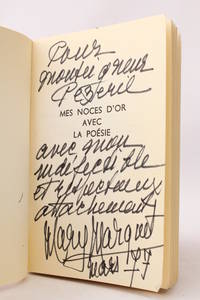 Pour
monseigneur
Pezeril
MES NOCES D'OR
AVEC
LA POÉSIE
avec mon
indéfectible
et respectueux
attachement
Mary Marquet
mars